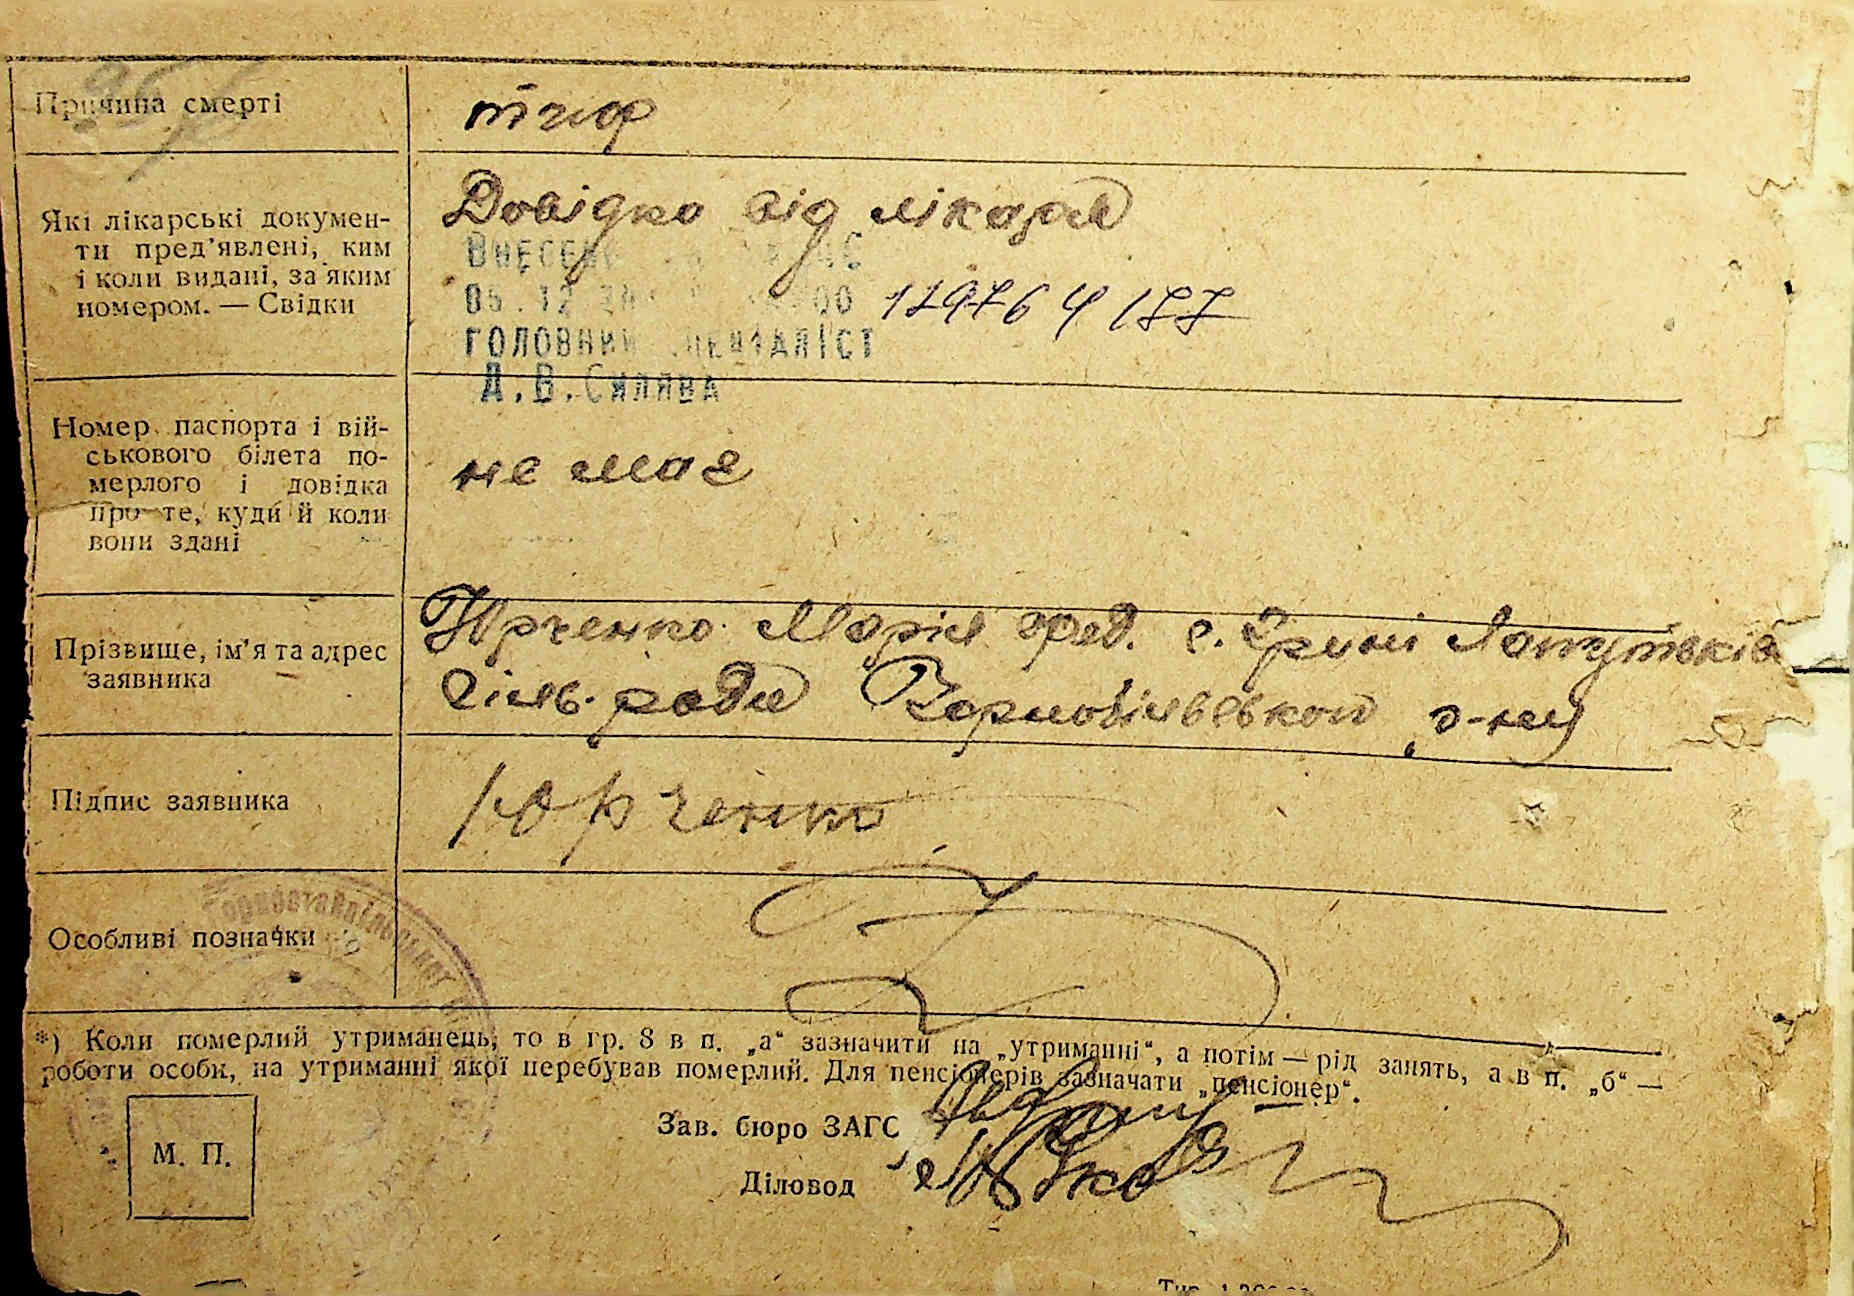 Причина смерті
тиф
Які лікарські докумен-
ти пред'явлені, ким
і коли видані, за яким
номером. — Свідки
Довідка від лікаря
ГОЛОВНИЙ СПЕЦІАЛІСТ
Д.В.Силява
Номер паспорта і вій-
ськового білета по-
мерлого і довідка
про те, куди й коли
вони здані
не має
Прізвище, ім'я та адрес
заявника
Юрченко Марія с.
Сіль. ради р-ну
Підпис заявника
Юрченко
Особливі позначки
*) Коли померлий утриманець, то в гр. 8 в п. „а“ зазначити на „утриманні“, а потім — рід занять, а в п. „б“ —
роботи особи, на утриманні якої перебував померлий. Для пенсіонерів зазначати „пенсіонер“.
Зав. бюро ЗАГС
Діловод
М. П.